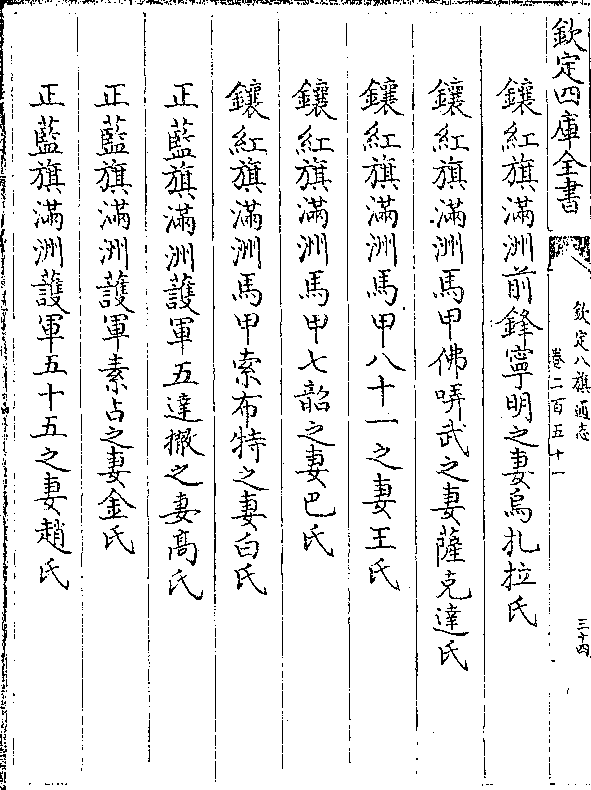 欽定四庫全書
欽定八旗通志
卷二百五十一
三十四
鑲紅旗滿洲前鋒寧明之妻烏扎拉氏
鑲紅旗滿洲馬甲佛哢武之妻薩克達氏
鑲紅旗滿洲馬甲八十一之妻王氏
鑲紅旗滿洲馬甲七韶之妻巴氏
鑲紅旗滿洲馬甲索布特之妻白氏
正藍旗滿洲護軍五達撒之妻高氏
正藍旗滿洲護軍素占之妻金氏
正藍旗滿洲護軍五十五之妻趙氏